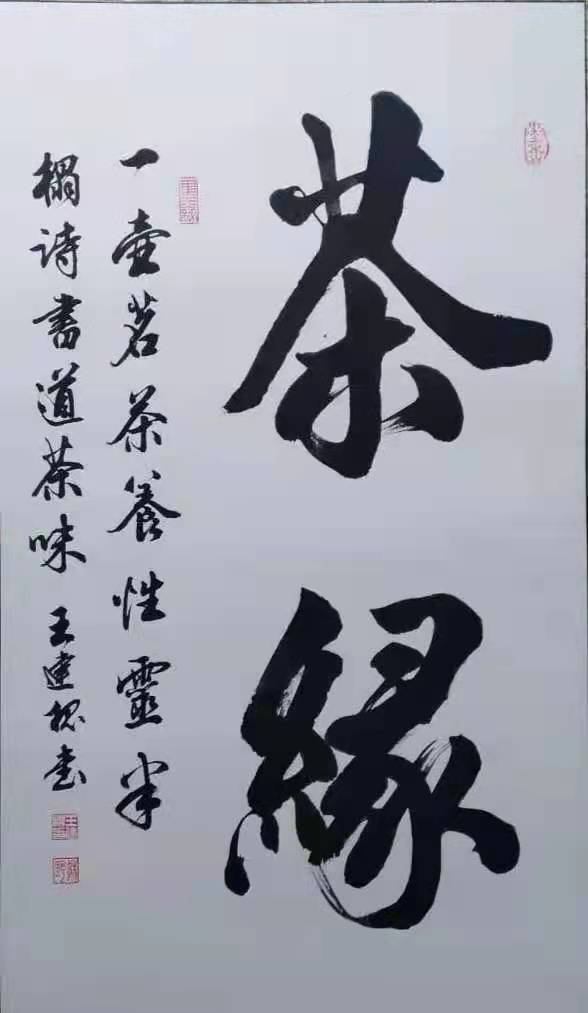 茶緣
一壺茗茶養性靈半
榻詩書道茶味 王建 書